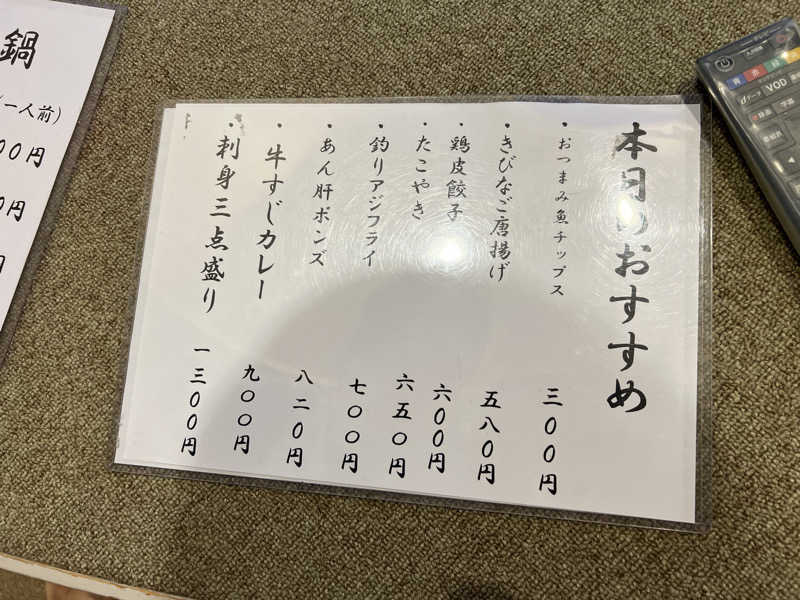 本日のおすすめ
・おつまみ魚チップス 三〇〇円
・きびなご唐揚げ 五八〇円
・鶏皮餃子 六〇〇円
・たこやき 六五〇円
・釣りアジフライ 七〇〇円
・あん肝ポンズ 八二〇円
・牛すじカレー 九〇〇円
・刺身三点盛り 一三〇〇円
鍋
(一人前)
00円
0円
円
青 赤 緑
dデータ VOD
字幕
番組表